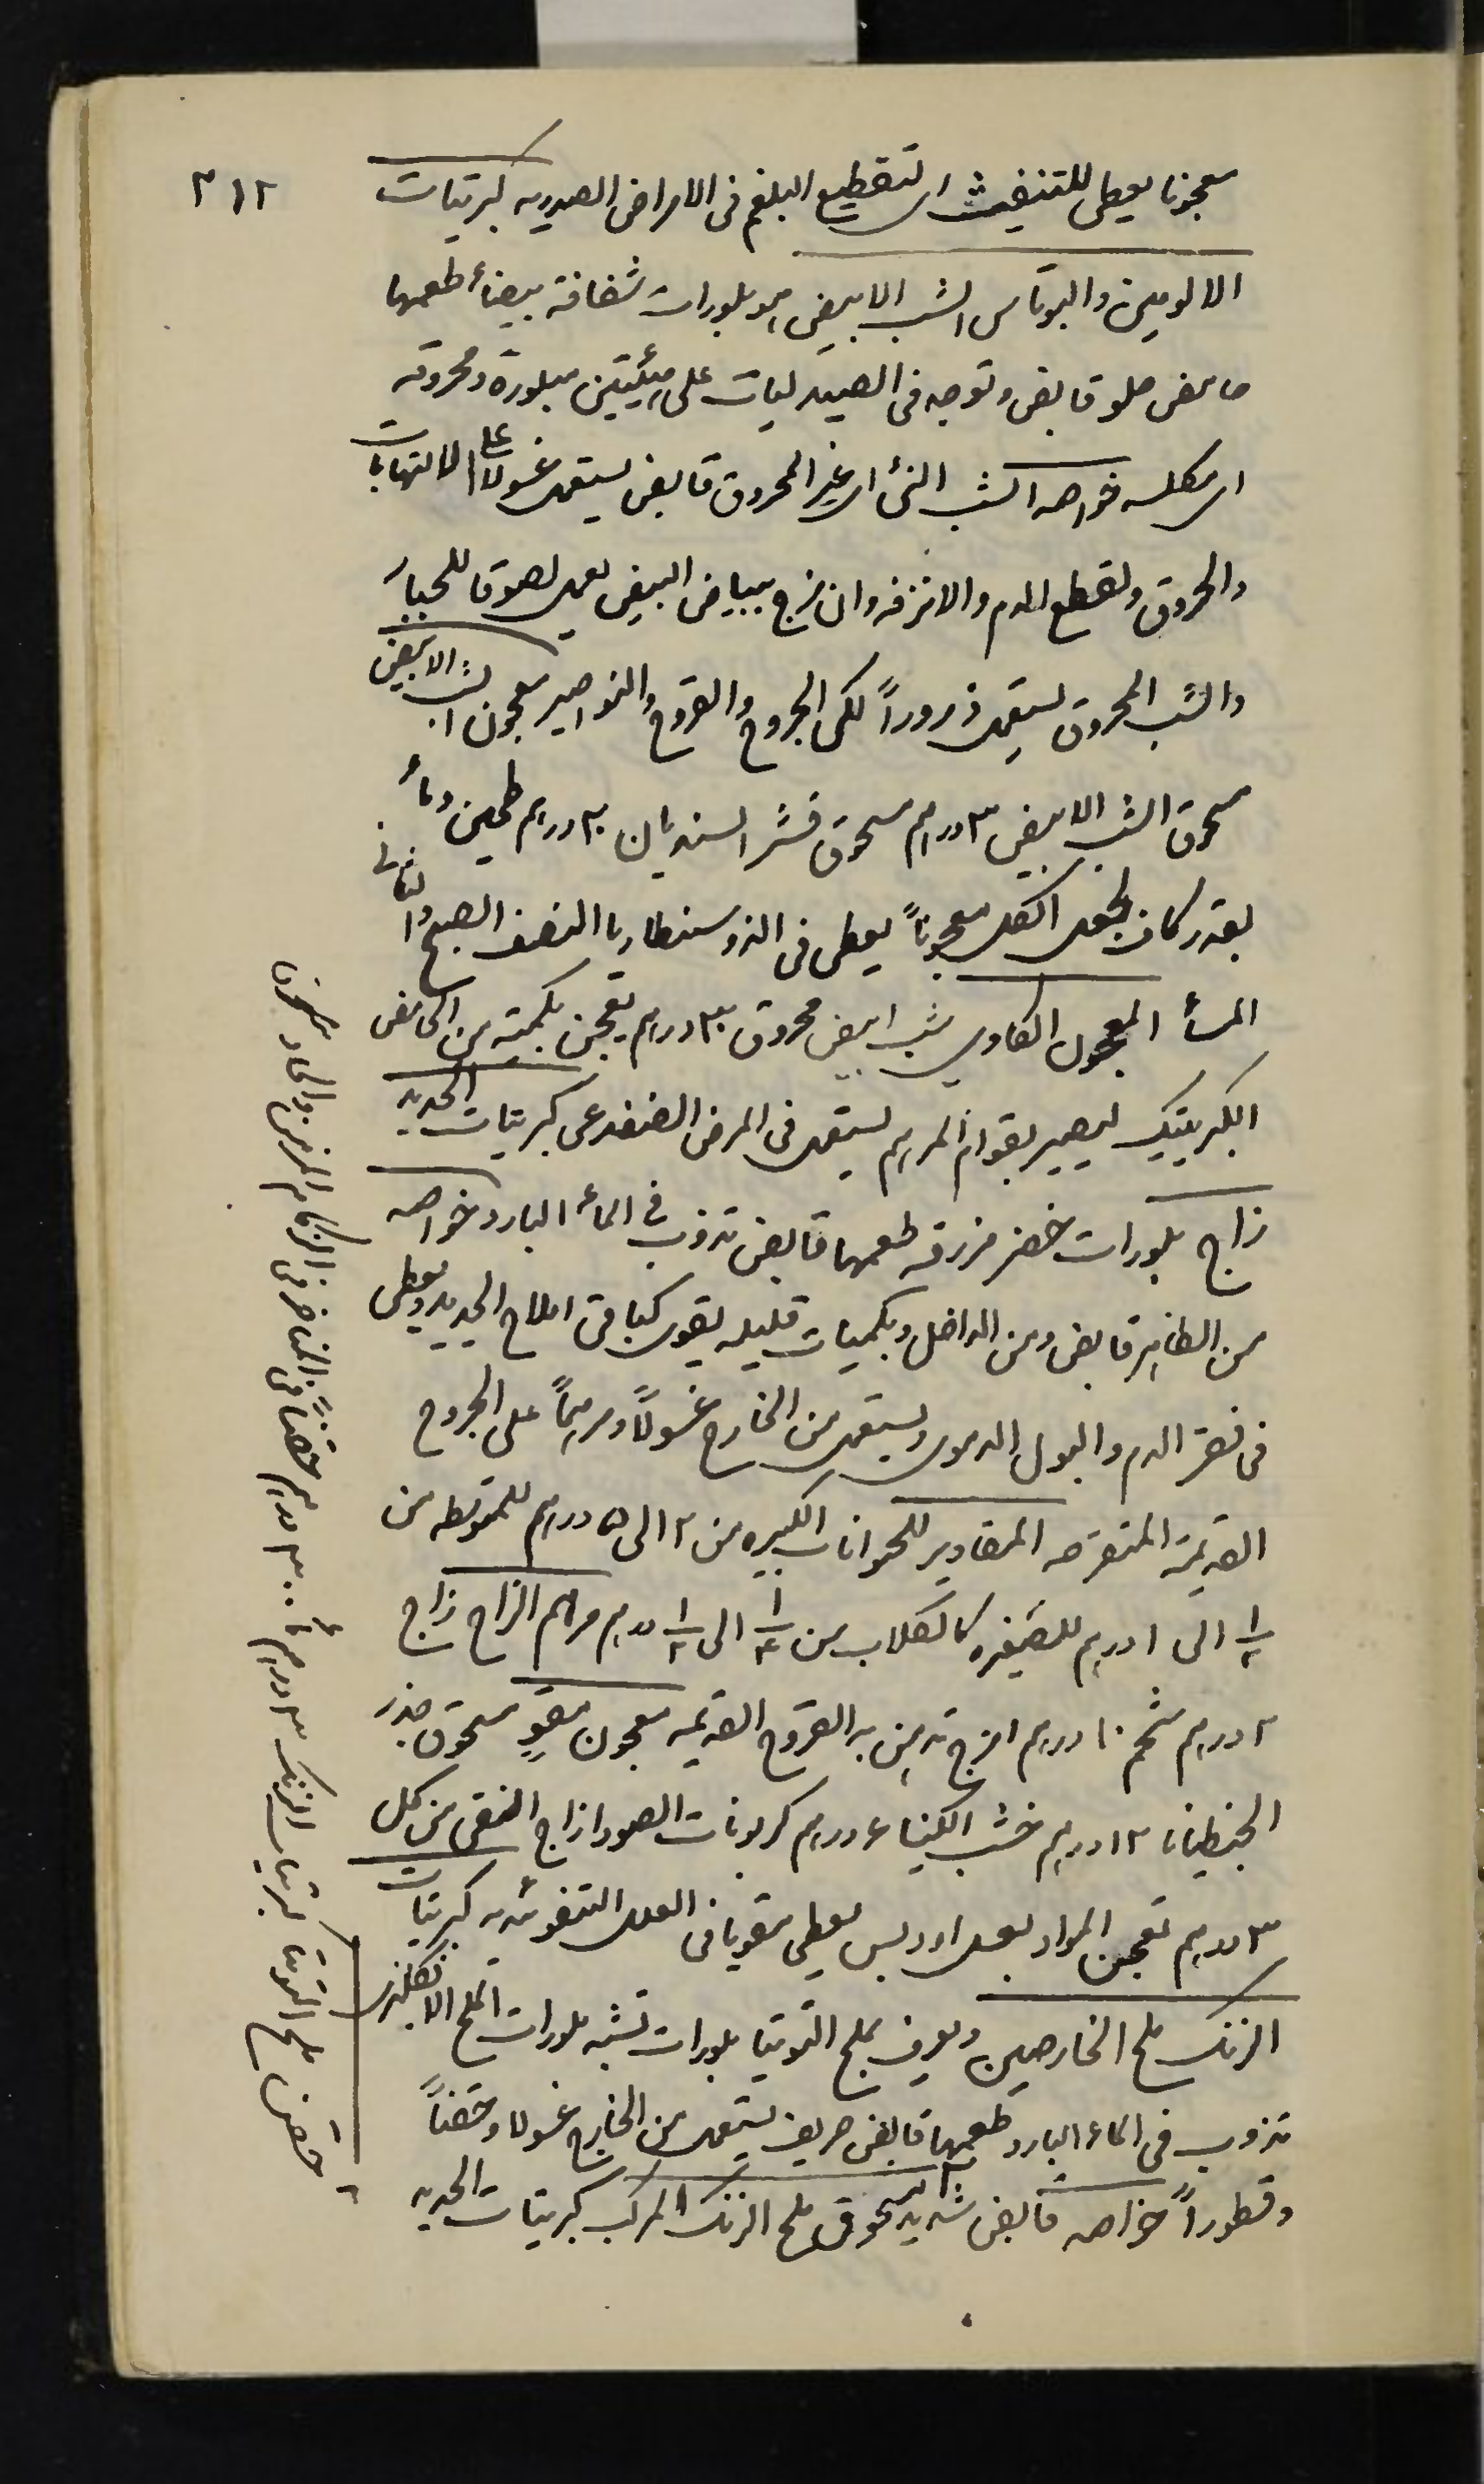 ٣١٢
معجونا يعطى للتنفيث اى لتقطيع البلغم فى الامراض الصدريه كبريتات
الالومين والبوتاس الشب الابيض هو بلورات شفافة بيضأ طعمها
حامض حلو قابض وتوجد فى الصيدليات على هيئتين مبلورة ومحروقه
اى مكلسه خواصه الشب النئ اى غير المحروق قابض يستعمل غسولا على الالتهابات
والحروق ولقطع الدم والانزفه وان مزج ببياض البيض يعمل لصوقا للجبار
والشب المحروق يستعمل ذروراً لكى الجروح والقروح والنواصير معجون الشب الابيض
مسحوق الشب الابيض ٣ درهم مسحوق قشر السنديان ٢ درهم طحين ومأ
بقدر كاف يجعل الكل معجوناً يعطى فى الدوسنطاريا النصف الصبح والثانى
المسأ المعجون الكاوى شب ابيض محروق ٣ درهم يعجن بكمية من الحامض
الكبريتيك ليصير بقوام المرهم يستعمل فى المرض الضفدعى كبريتات الحديد
زاج بلورات خضر مزرقه طعمها قابض تذوب فى المأ البارد خواصه
من الظاهر قابض ومن الداخل وبكميات قليله يقوى كباقى املاح الحديد ويعطى
فى فقر الدم والبول الدموى ويستعمل من الخارج غسولاً ومرهماً على الجروح
القديمة المتقرحه المقادير للحيوانات الكبيره من ٢ الى ٥ درهم للمتوسطه من
١/٢ الى ١ درهم للصغيره كالكلاب من ١/٤ الى ١/٢ درهم مرهم الزاج زاج
٢ درهم شحم ١٠ درهم امزج تدهن به القروح القديمه معجون مقوٍ مسحوق جذر
الجنطيانا ١٢ درهم خشب الكينا ٤ درهم كربونات الصودا زاج النقى من كل
٣ درهم تعجن المواد بعسل او دبس يعطى مقويا فى العلل التنفوئديه كبريتات
الزنك ملح الخارصين ويعرف بملح التوتيا بلورات تشبه بلورات الملح الانكليزى
تذوب فى الماء البارد طعمها قابض حريف يستعمل من الخارج غسولا وحقناً
وقطوراً خواصه قابض شديد مسحوق ملح الزنك المركب كبريتات الحديد
حقن ملح التوتيا كبريتات الزنك ٣ درهم مأ ٣٠٠ درهم حقناً فى المناخر فى الزكام المزمن والحاد